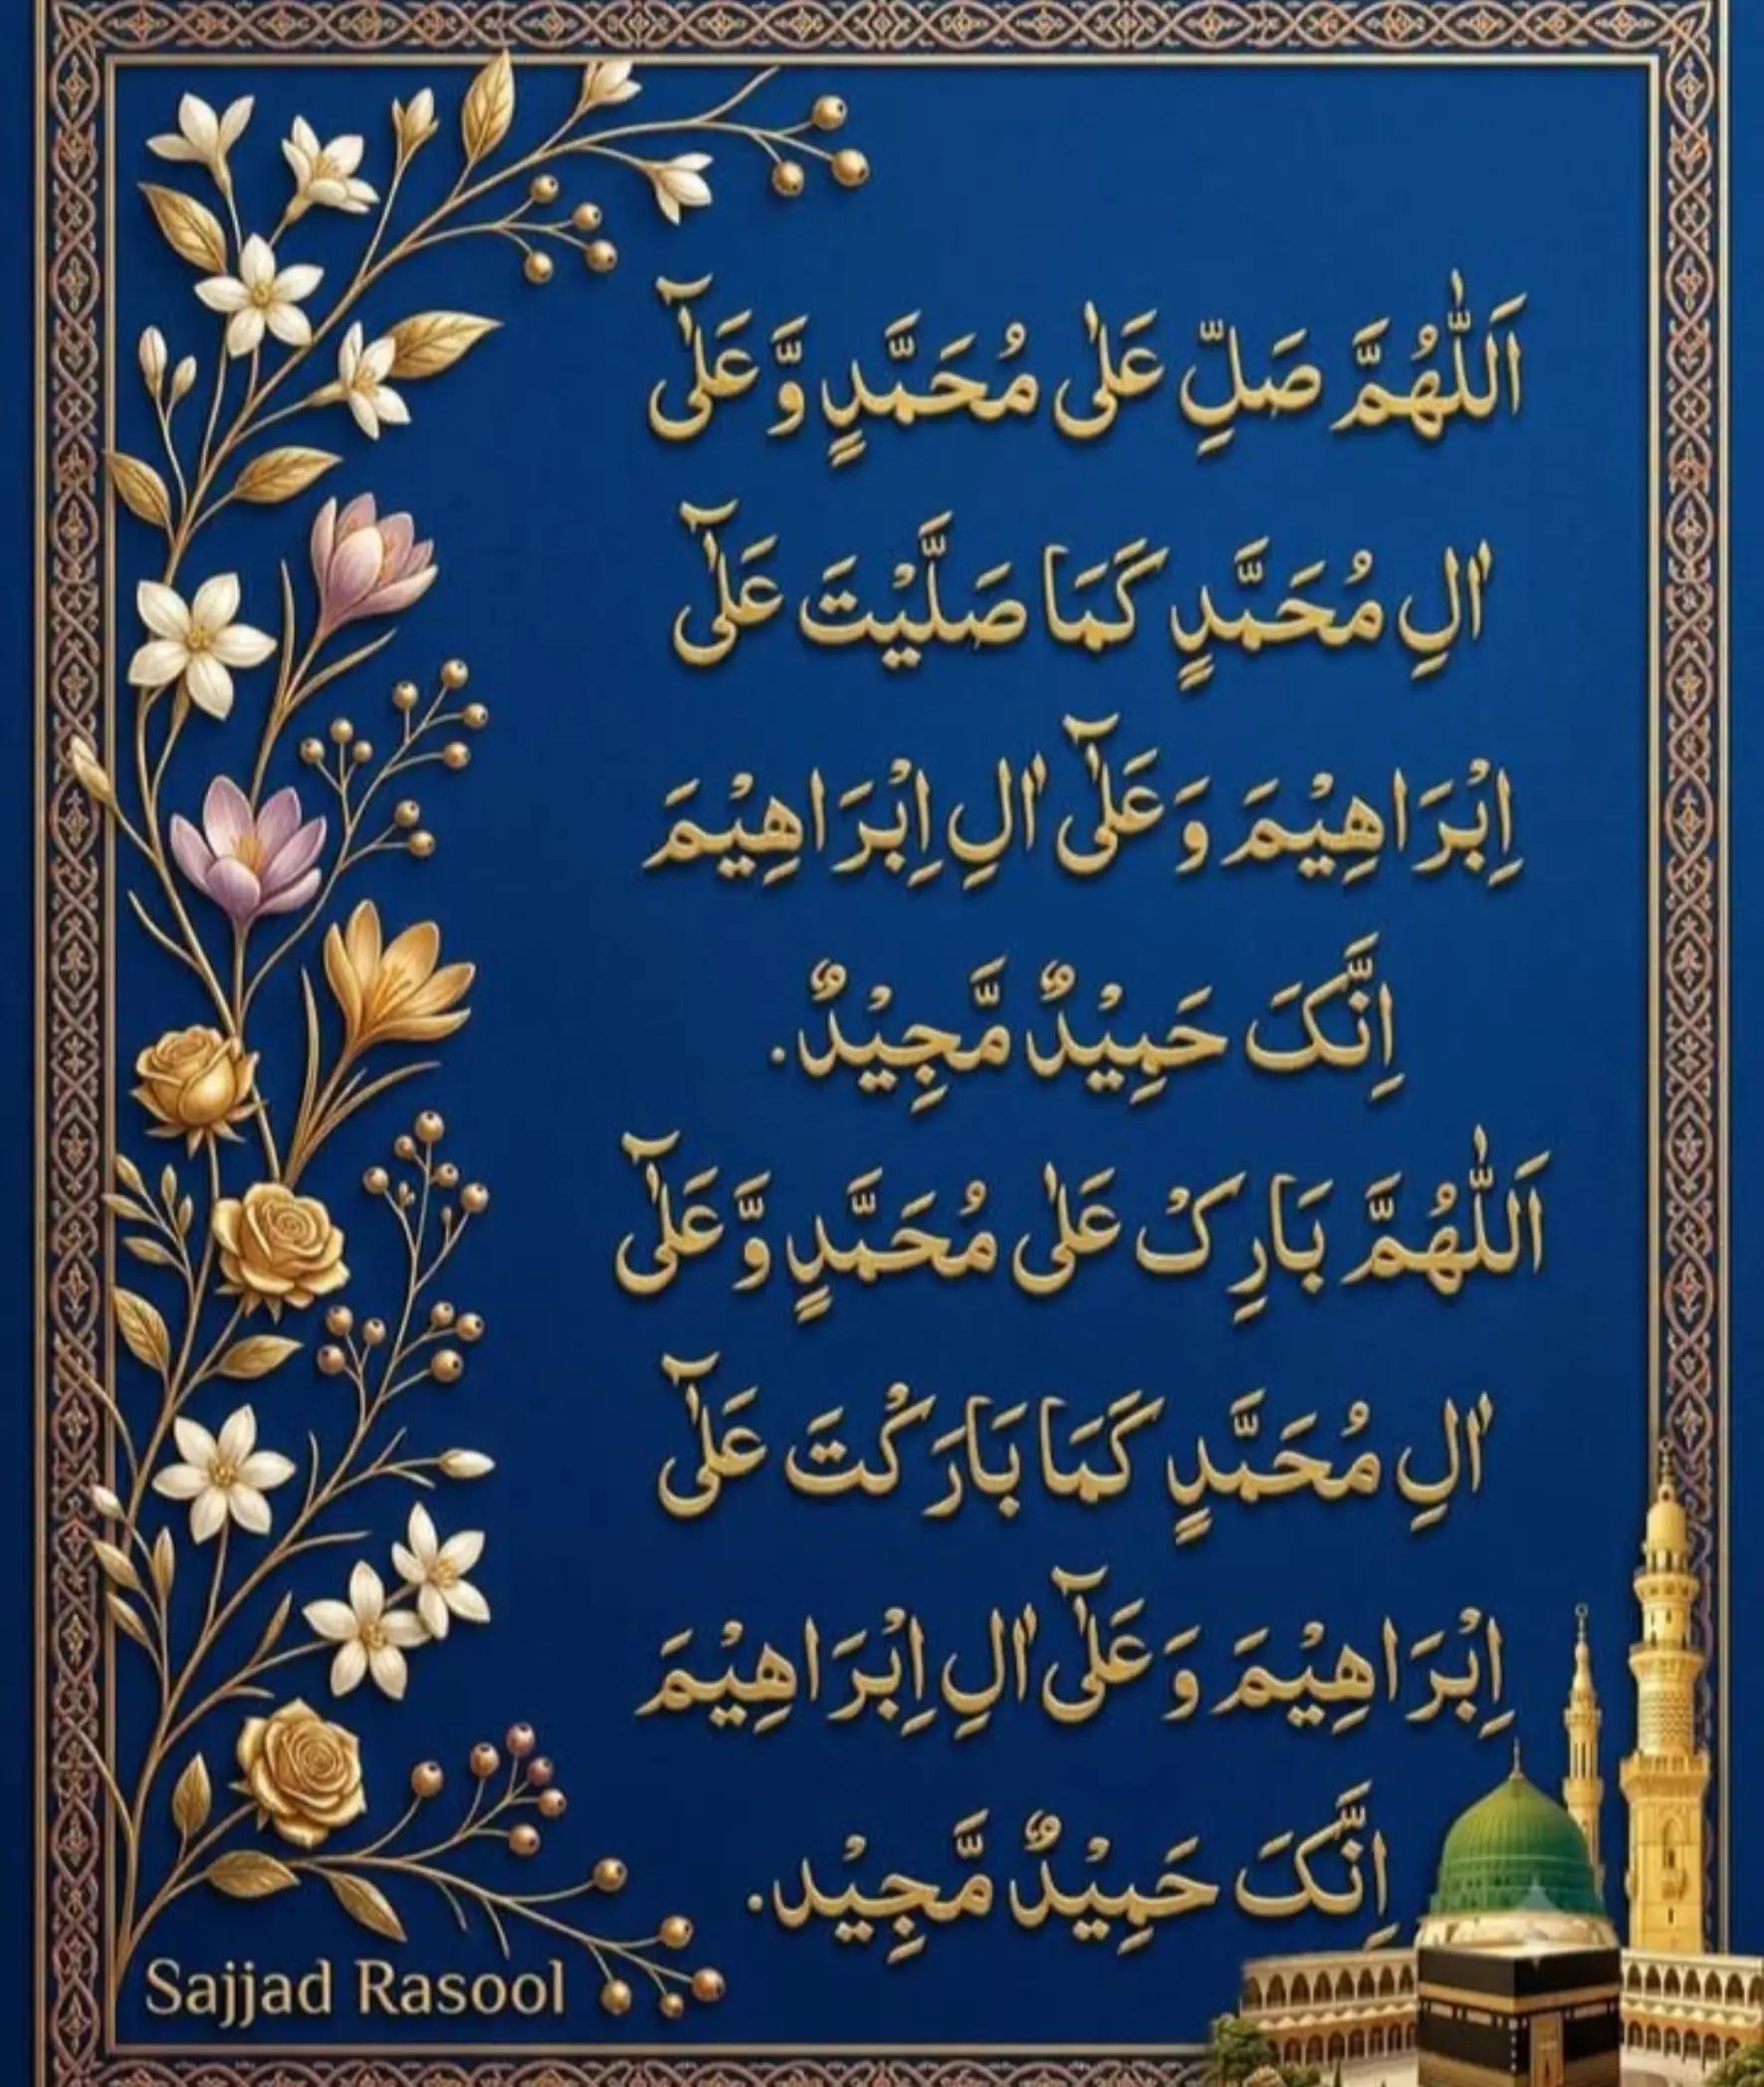 اَللّٰهُمَّ صَلِّ عَلٰى مُحَمَّدٍ وَّعَلٰٓى
اٰلِ مُحَمَّدٍ كَمَا صَلَّيْتَ عَلٰٓى
اِبْرَاهِيْمَ وَعَلٰٓى اٰلِ اِبْرَاهِيْمَ
اِنَّکَ حَمِيْدٌ مَّجِيْدٌ.
اَللّٰهُمَّ بَارِكْ عَلٰى مُحَمَّدٍ وَّعَلٰٓى
اٰلِ مُحَمَّدٍ كَمَا بَارَكْتَ عَلٰٓى
اِبْرَاهِيْمَ وَعَلٰٓى اٰلِ اِبْرَاهِيْمَ
اِنَّکَ حَمِيْدٌ مَّجِيْد.
Sajjad Rasool